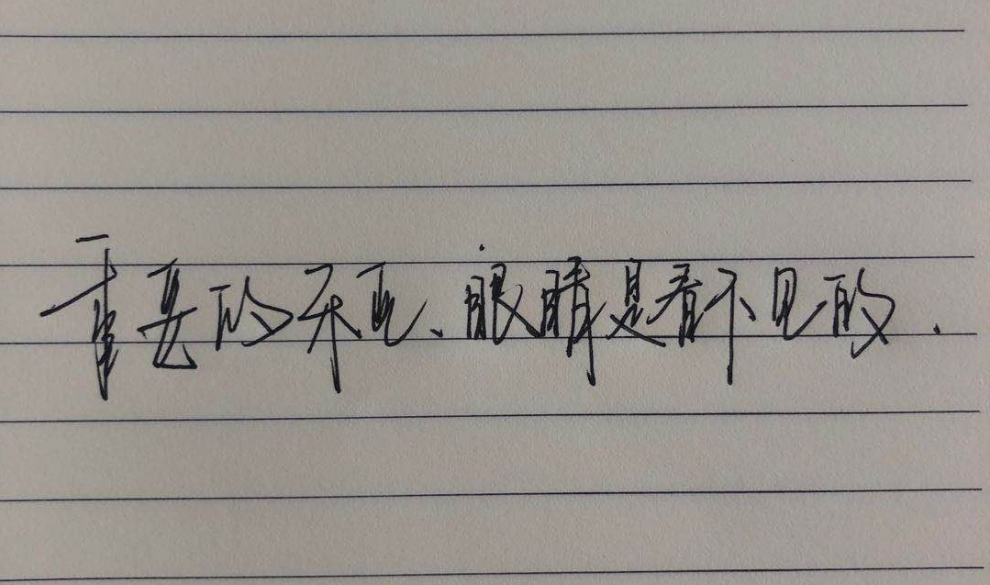 重要的东西、眼睛是看不见的.